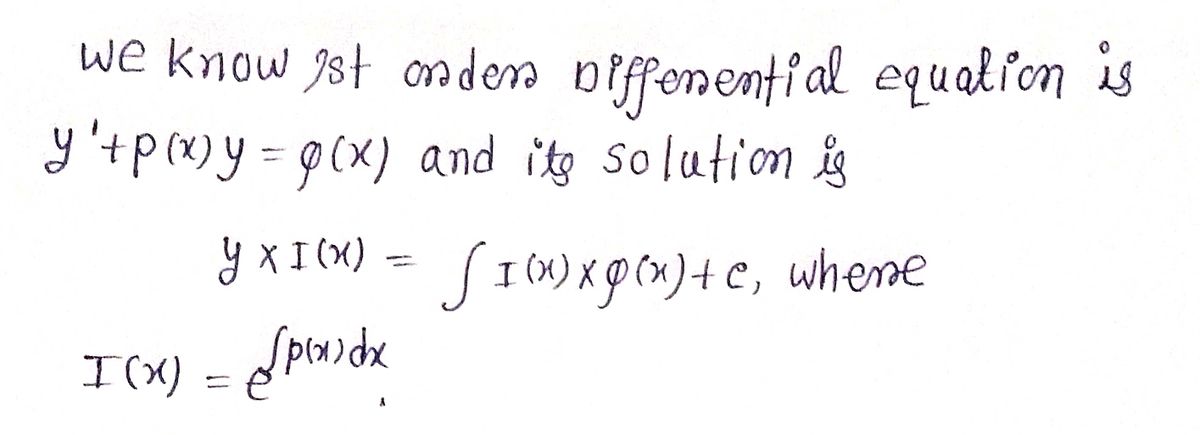 we know 1st order Differential equation is
y'+p(x)y = φ(x) and its solution is
y x I(x) = ∫I(x)xφ(x)+c, where
I(x) = e^∫p(x)dx.